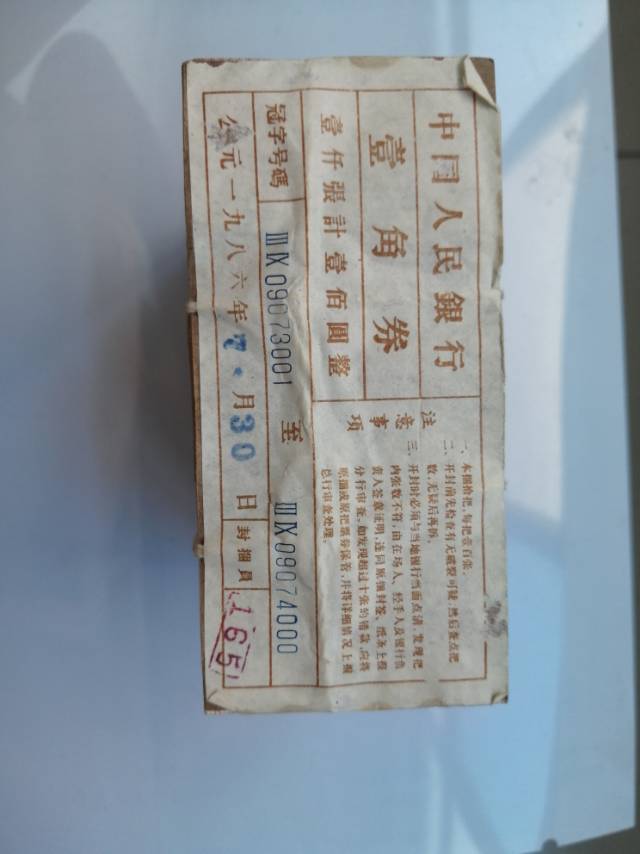 中国人民銀行
壹角券
壹仟張計壹佰圓整
冠字号碼 ⅢⅨ09073001 至 ⅢⅨ09074000
公元一九八六年7月30日
封捆員 165
注意事项
一、本捆拾把,每把壹百张。
二、开封前请检查有无破裂可疑,然后查点把
数,无疑后再拆。
三、开封时必须与当地银行当面点清,发现把
内张数不符,由在场人、经手人及银行负
责人签章证明,连同原捆封签、纸条上报
分行审查。如发现超过十张的错款,应将
原捆或原把票券保管,并将详细情况上报
总行审查处理。